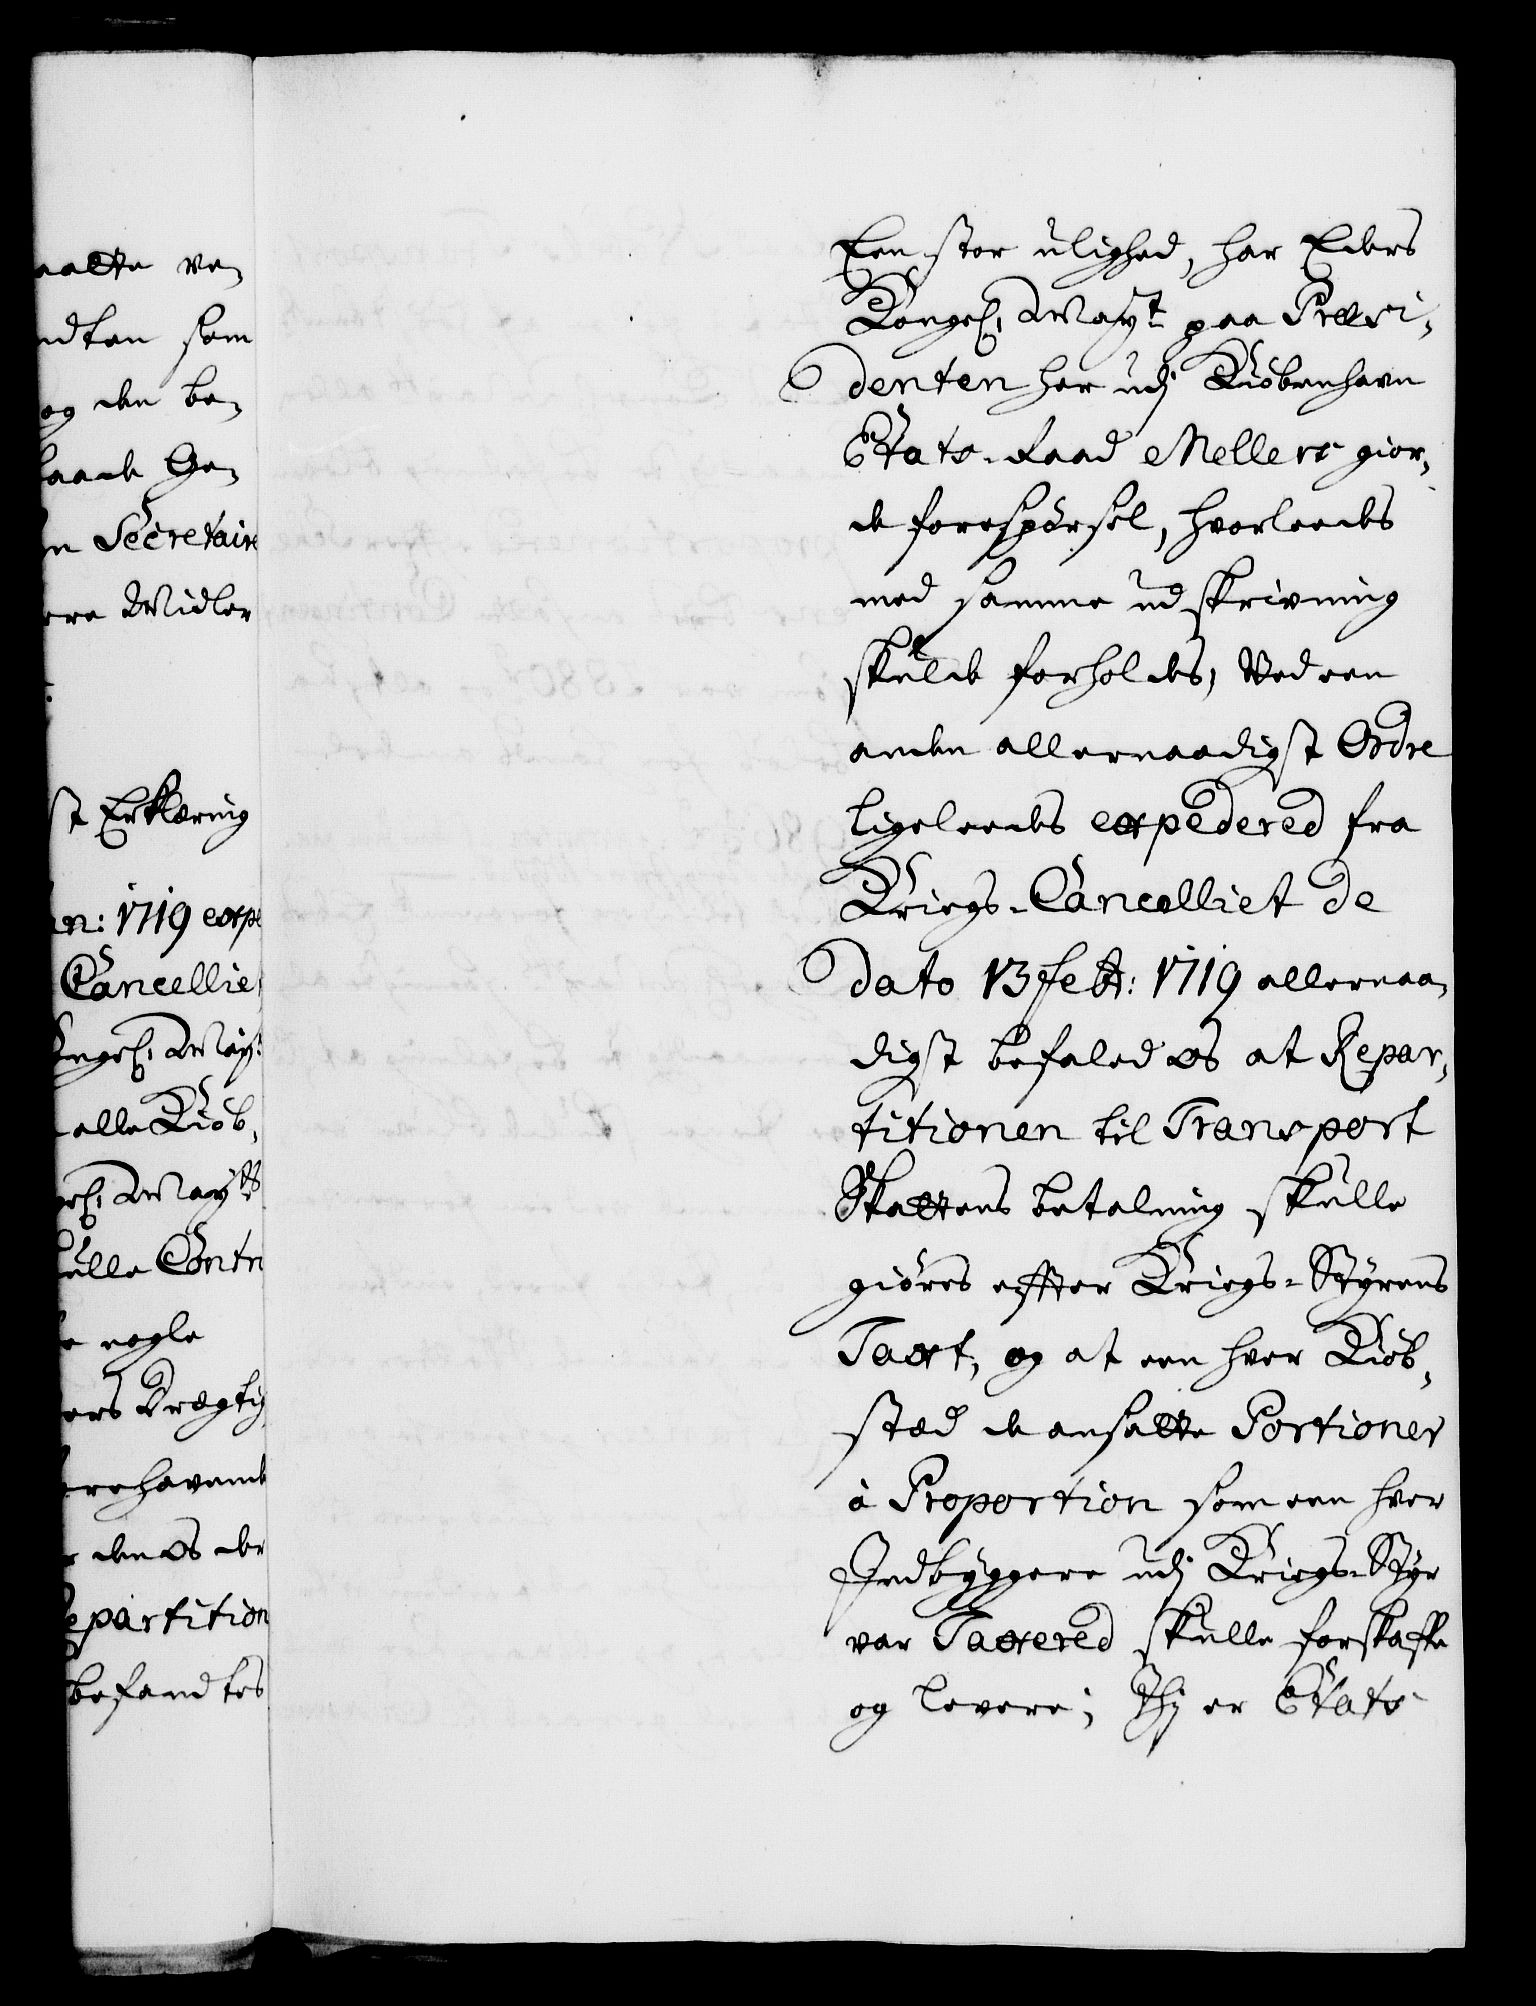 aatte ve-
ndten som
og den be-
laade Ge-
n Secretaire
ere Midler
st Erklæring
an: 1719 expe
Cancellie
ongel: May:
alle Kiöb-
gel: Maytts
ulle Contr
e nogle
ers Drægtig
rehavende
den os der
epartition
befandtes
Een stor ulighed, har Eders
Kongel: Mayt paa Præsi-
denten her udj Kiöbenhavn
Etats-Raad Mellers gior-
de forespörsel, hvorleedes
med samme udskrivning
skulde forholdes, Ved een
anden allernaadigst Ordre
ligeleedes expedered fra
Kriegs-Cancelliet de
dato 13 febr: 1719 allernaa-
digst befaled os at Repar-
titionen til Transport
Skattens betalning skulle
giöres effter Kriegs-Styrens
Taxt, og at een hver Kiöb-
stæd de ansatte Portioner
à Proportion som een hver
Indbyggere udj Kriegs-Styr
var Taxered skulle forskaffe
og levere; Thj er Etats-